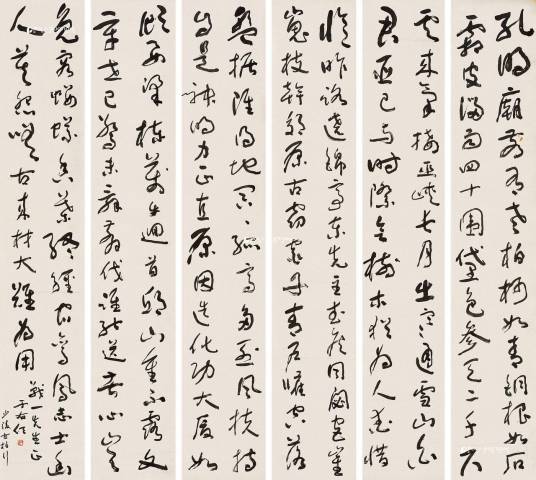 孔明廟前有老柏柯如青銅根如石
霜皮溜雨四十圍黛色參天二千尺
雲來氣接巫峽長月出寒通雪山白
君臣已與時際會樹木猶為人愛惜
憶昨路繞錦亭東先主武侯同閟宮崔
嵬枝幹郊原古窈窕丹青戶牖空落
盤據雖得地冥冥孤高多烈風扶持
自是神明力正直原因造化功大廈如
傾要梁棟萬牛迴首邱山重不露文
章世已驚未辭翦伐誰能送苦心豈
免容螻蟻香葉終經宿鸞鳳志士幽
人莫怨嗟古來材大難為用
先生正
于右任
少陵古柏行